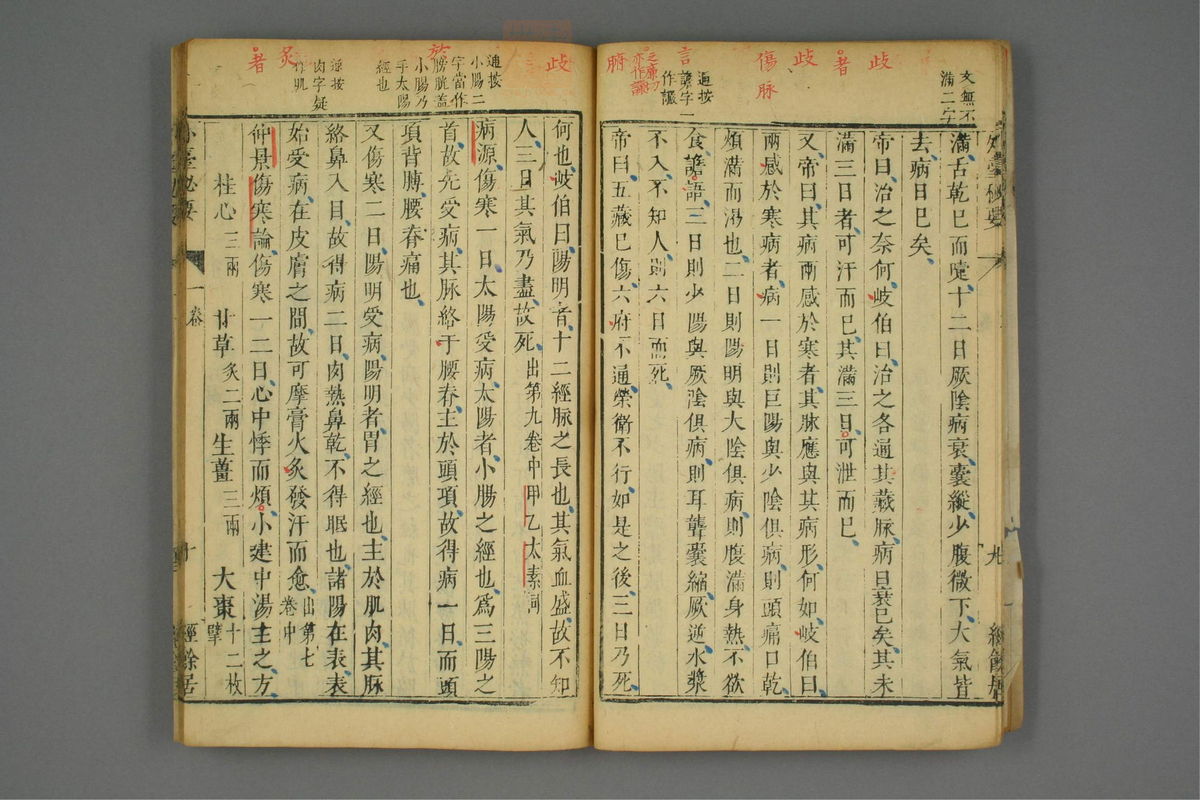 文無不
滿二字
外臺秘要
九
經餘居
滿舌乾巳而嚏十二日厥陰病衰囊縱少腹微下大氣皆
去病日巳矣
帝曰治之奈何岐伯曰治之各通其藏脉病日衰巳矣其未
滿三日者可汗而巳其滿三日可泄而巳
又帝曰其病兩感於寒者其脉應與其病形何如岐伯曰
兩感於寒病者病一日則巨陽與少陰俱病則頭痛口乾
煩滿而渴也二日則陽明與大陰俱病則腹滿身熱不欲
食譫語三日則少陽與厥陰俱病則耳聾囊縮厥逆水漿
不入不知人則六日而死
帝曰五藏巳傷六府不通榮衛不行如是之後三日乃死
歧
者
歧
傷脉
言
通按
譫字一
作讝
之廉切
亦作讝
腑
何也岐伯曰陽明者十二經脉之長也其氣血盛故不知
人三日其氣乃盡故死出第九卷中甲乙太素同
病源傷寒一日太陽受病太陽者小腸之經也爲三陽之
首故先受病其脉絡于腰脊主於頭項故得病一日而頭
項背膊腰脊痛也
又傷寒二日陽明受病陽明者胃之經也主於肌肉其脉
絡鼻入目故得病二日肉熱鼻乾不得眠也諸陽在表表
始受病在皮膚之間故可摩膏火灸發汗而愈出第七卷中
仲景傷寒論傷寒一二日心中悸而煩小建中湯主之方
桂心三兩 甘草炙二兩 生薑三兩 大棗十二枚擘
歧
通按
小腸二
字當作
膀胱蓋
小腸乃
手太陽
經也
於
通按
肉字疑
作肌
炙
者
外臺秘要
一卷
十
經餘居